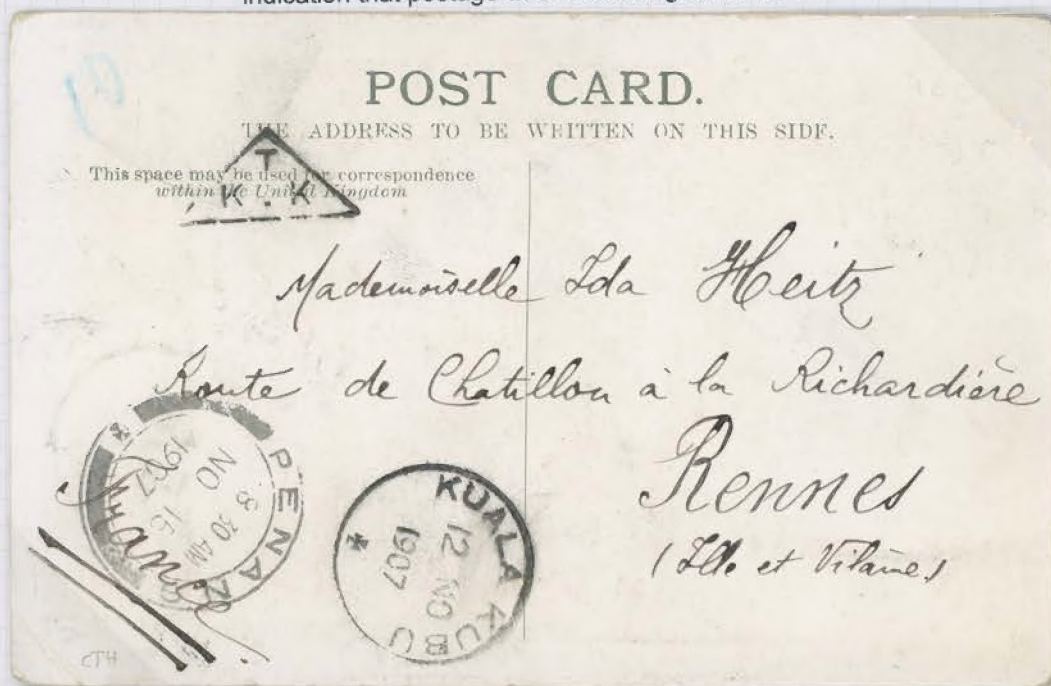 indication that postage
POST CARD.
THE ADDRESS TO BE WRITTEN ON THIS SIDE.
This space may be used for correspondence
within the United Kingdom
T
K.K
Mademoiselle Ida Heitz
Route de Chatillon à la Richardière
Rennes
(Ille et Vilaine)
France
PENANG
8 30 AM
NO 15
1907
KUALA KUBU
12 NO
1907
CT4